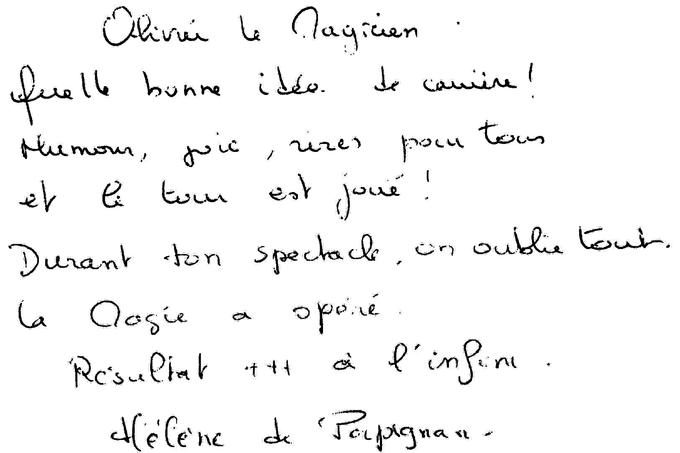 Olivier le Magicien.
Quelle bonne idée de carrière!
Humour, joie, rires pour tous
et le tour est joué!
Durant ton spectacle, on oublie tout.
La Magie a opéré.
Résultat +++ à l'infini.
Hélène de Perpignan.